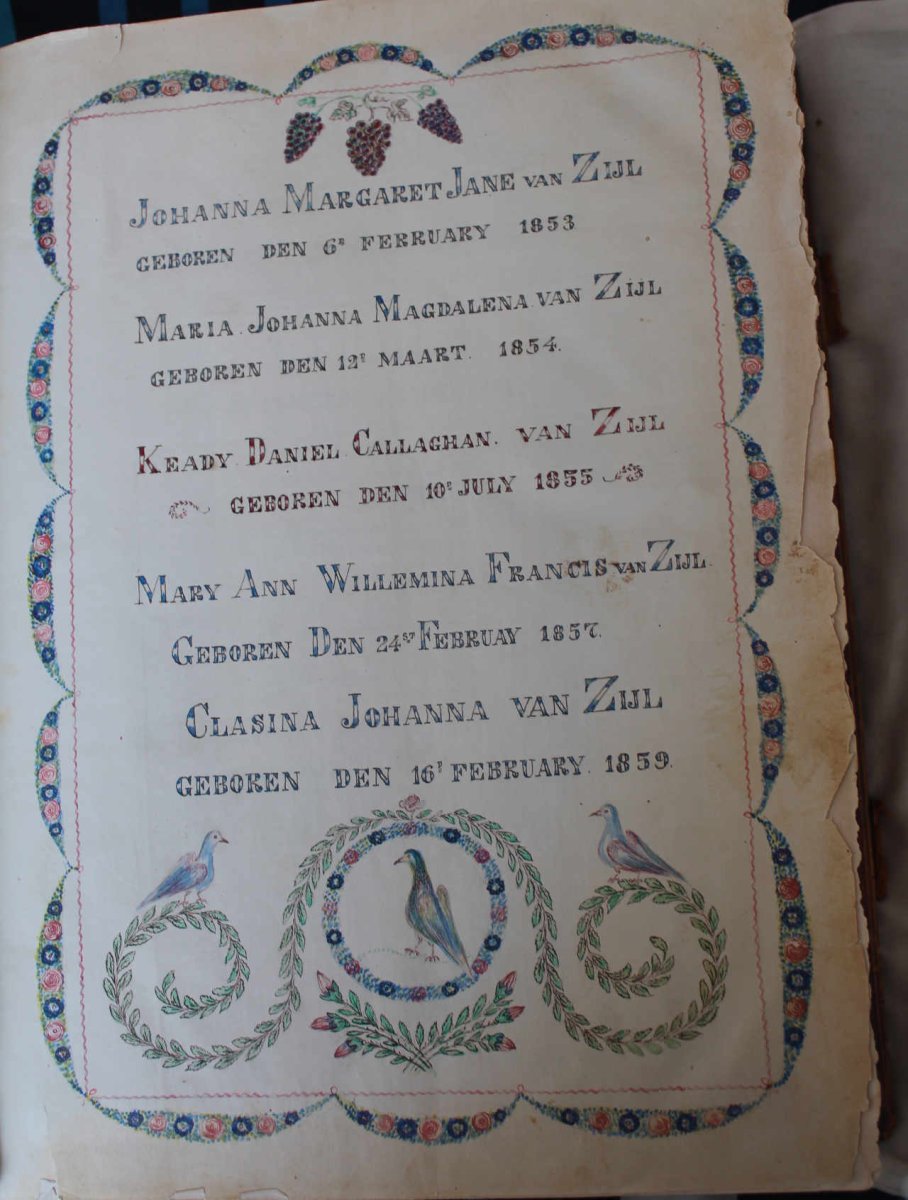 JOHANNA MARGARET JANE VAN ZIJL
GEBOREN DEN 6E FEBRUARY 1853
MARIA JOHANNA MAGDALENA VAN ZIJL
GEBOREN DEN 12E MAART. 1854.
KEADY DANIEL CALLAGHAN. VAN ZIJL
GEBOREN DEN 10E JULY 1855
MARY ANN WILLEMINA FRANCIS VAN ZIJL
GEBOREN DEN 24STE FEBRUAY 1857.
CLASINA JOHANNA VAN ZIJL
GEBOREN DEN 16E FEBRUARY. 1859.